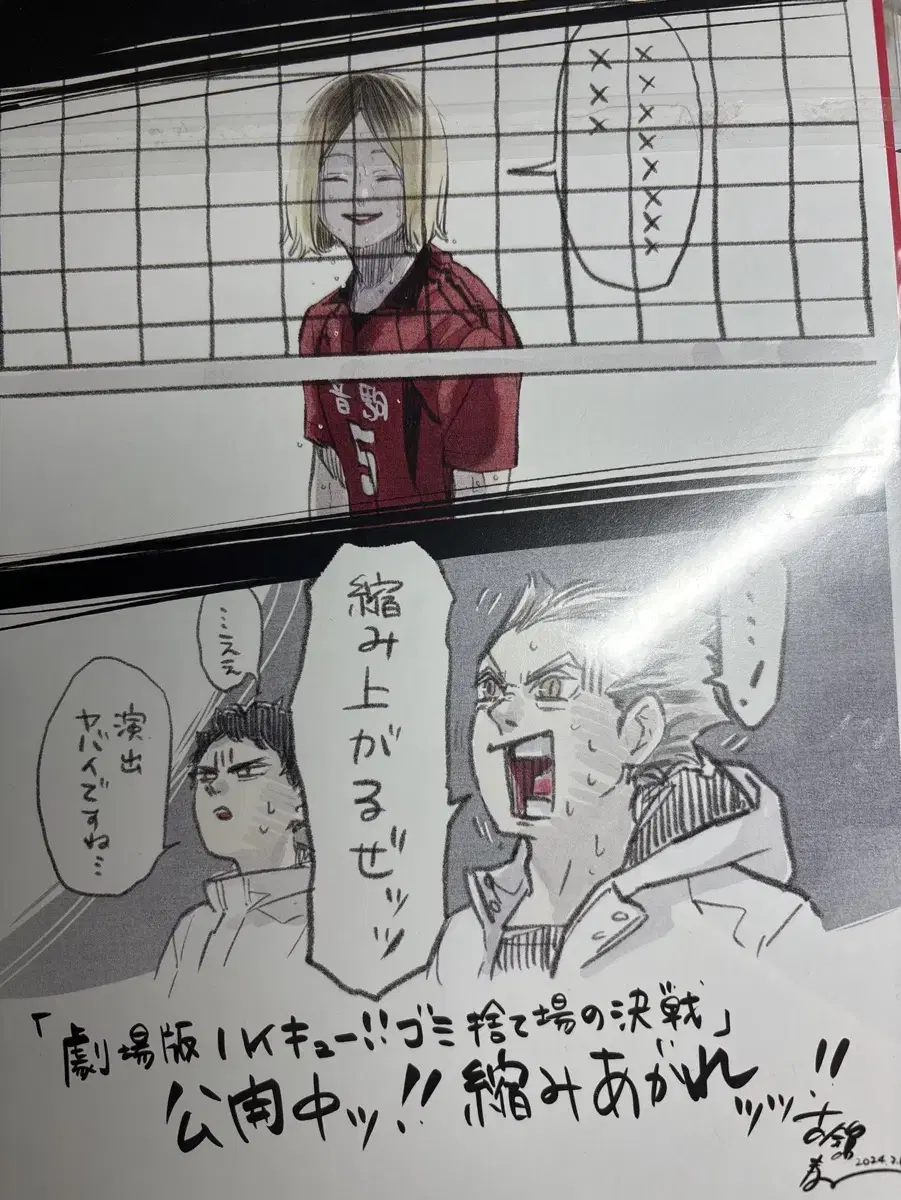 ×××××××××
×××
音駒
5
……!
縮み上がるぜッッ
……ええ
演出
ヤバイですね…
「劇場版ハイキュー!!ゴミ捨て場の決戦」
公開中ッ!!縮みあがれッッッ!!
古舘
春